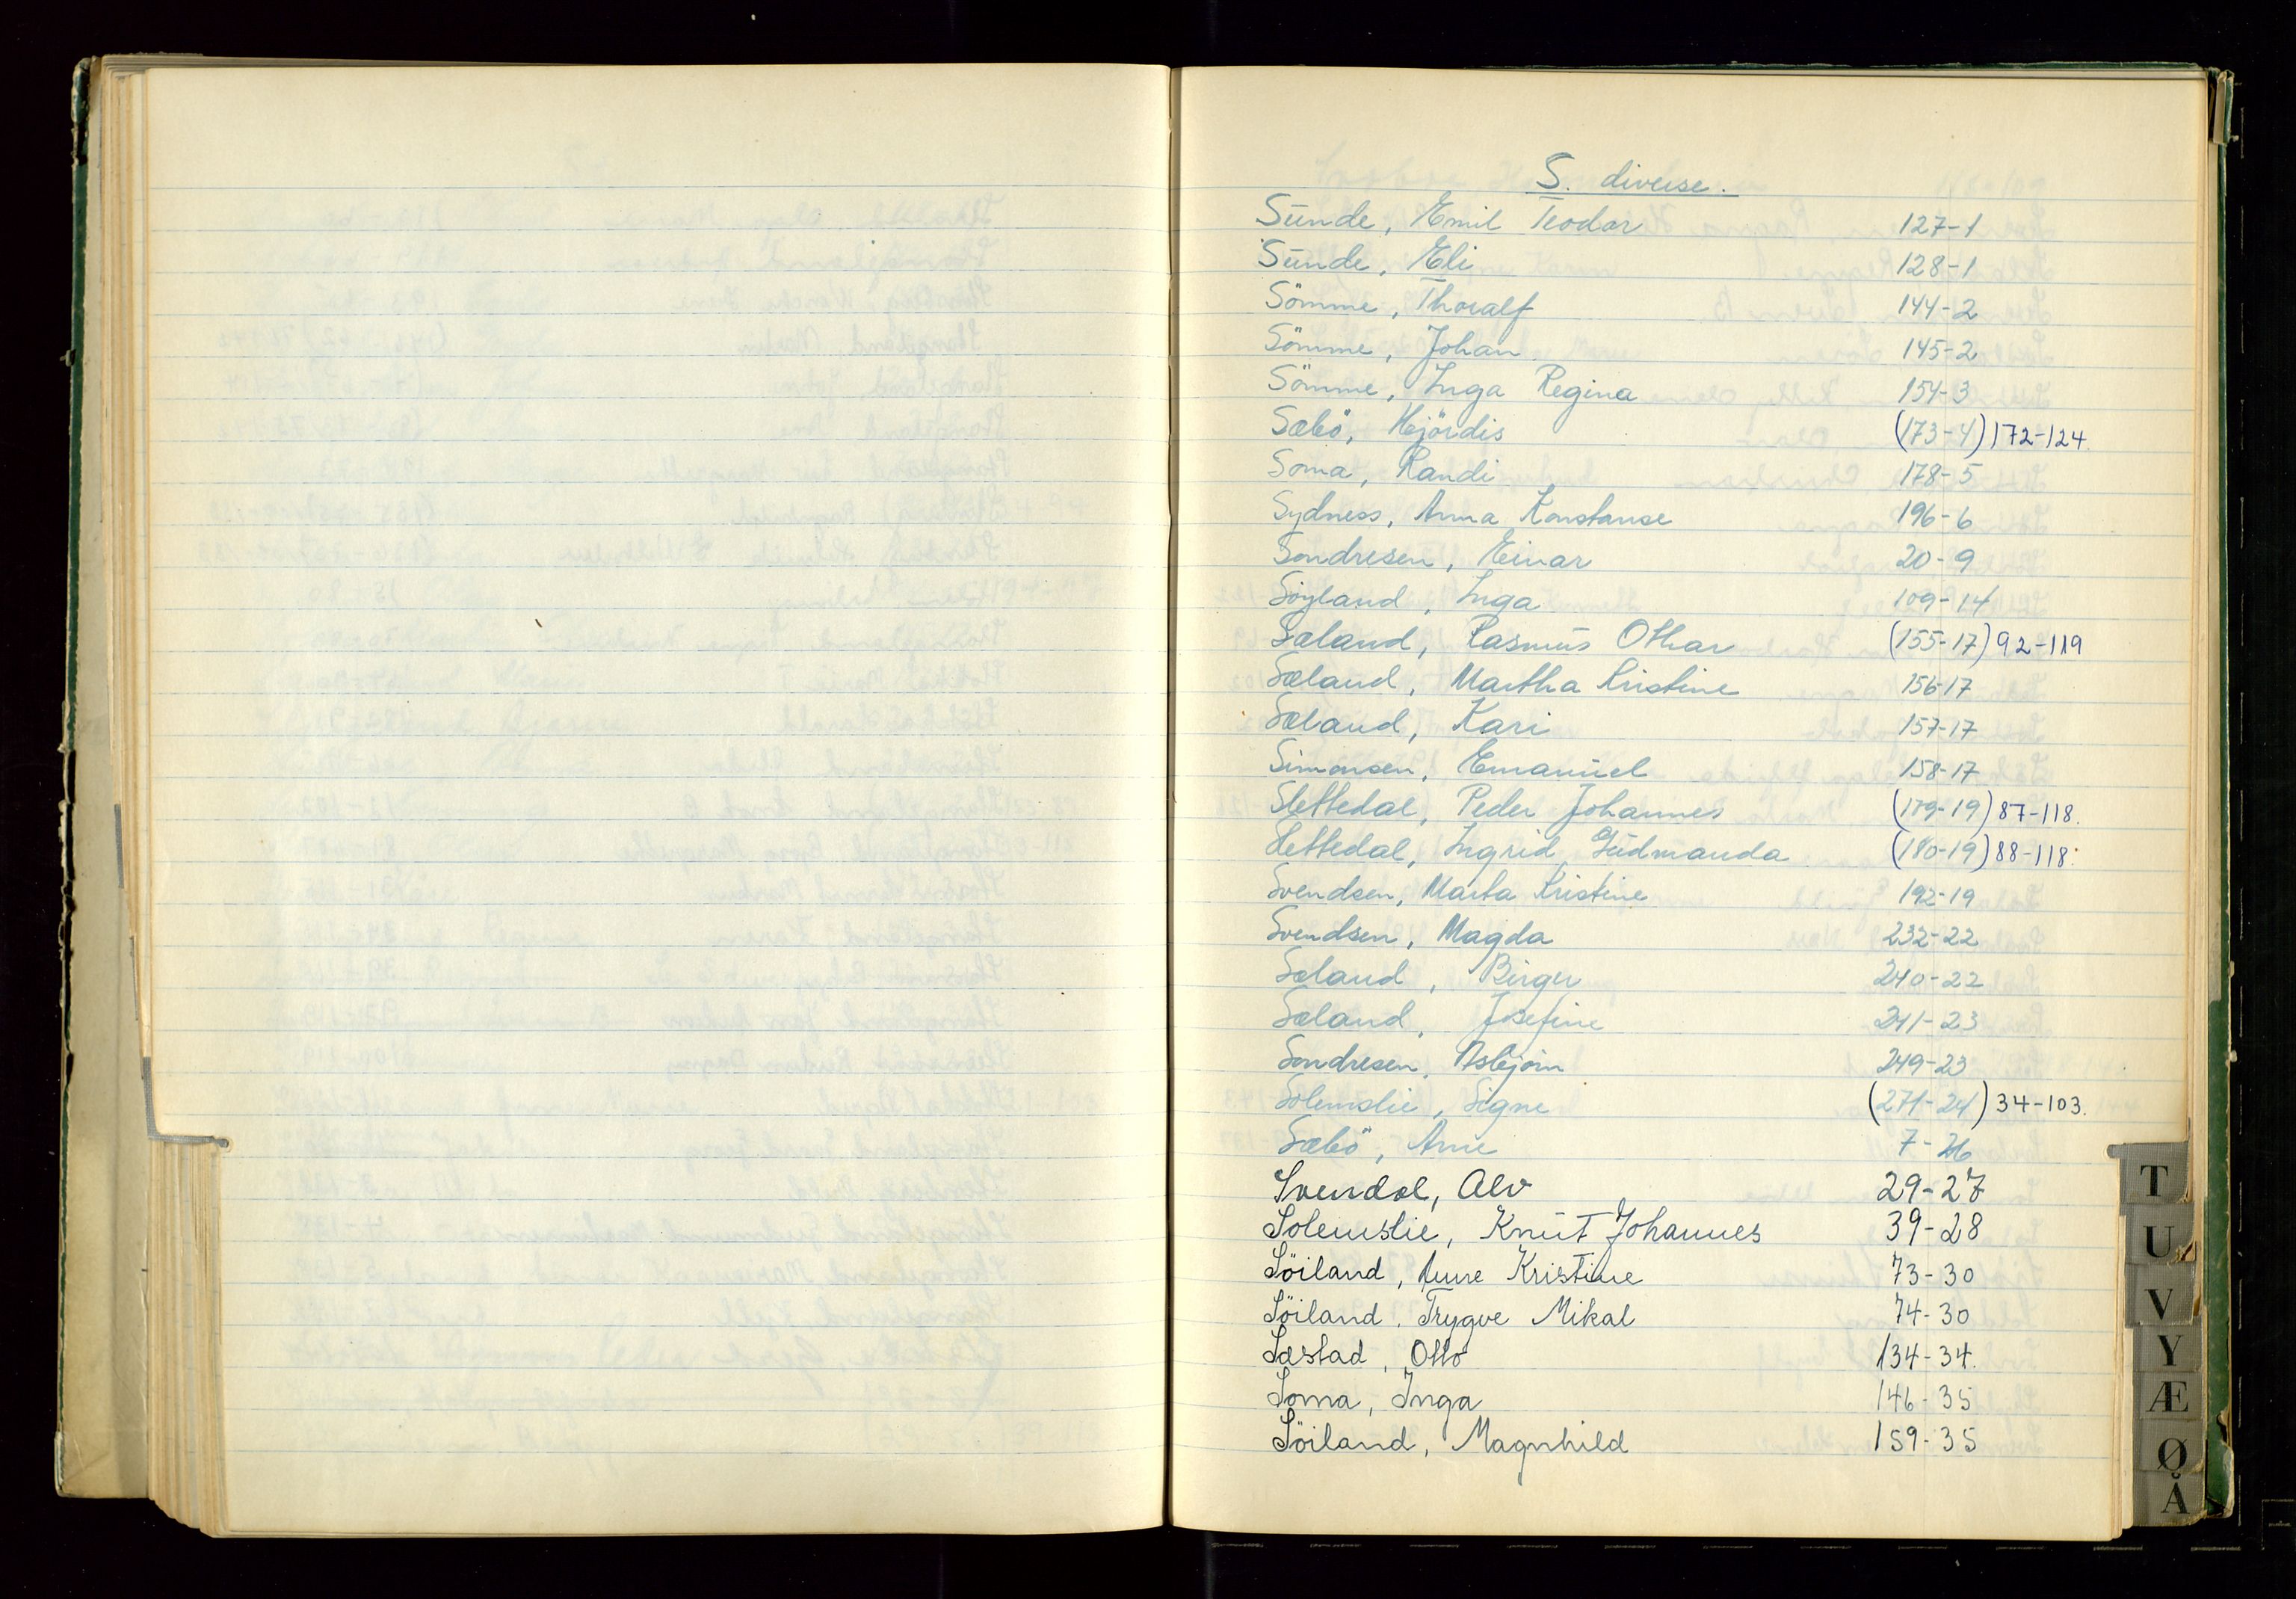 S. diverse.
Sünde, Emil Teodor 127-1
Sünde, Eli 128-1
Sömme, Thoralf 144-2
Sömme, Johan 145-2
Sömme, Inga Regina 154-3
Sæbö, Hjördis (173-4) 172-124.
Soma, Randi 178-5
Sydness, Anna Konstanse 196-6
Sondresen, Einar 20-9
Söyland, Inga 109-14
Sæland, Rasmüs Othar (155-17) 92-119
Sæland, Martha Kristine 156-17
Sæland, Kari 157-17
Simonsen, Emanüel 158-17
Slettedal, Peder Johannes (179-19) 87-118.
Slettedal, Ingrid Güdmanda (180-19) 88-118.
Svendsen, Marta Kristine 192-19
Svendsen, Magda 232-22
Sæland, Birger 240-22
Sæland, Josefine 241-23
Sondresen, Asbjörn 249-23
Solemslie, Signe (271-24) 34-103.
Sæbö, Arne 7-26
Svendal, Alv 29-27
Solemslie, Knüt Johannes 39-28
Söiland, Anne Kristine 73-30
Söiland, Trygve Mikal 74-30
Sæstad, Otto 134-34.
Soma, Inga 146-35
Söiland, Magnhild 159-35
T
U
V
Y
Æ
Ø
Å